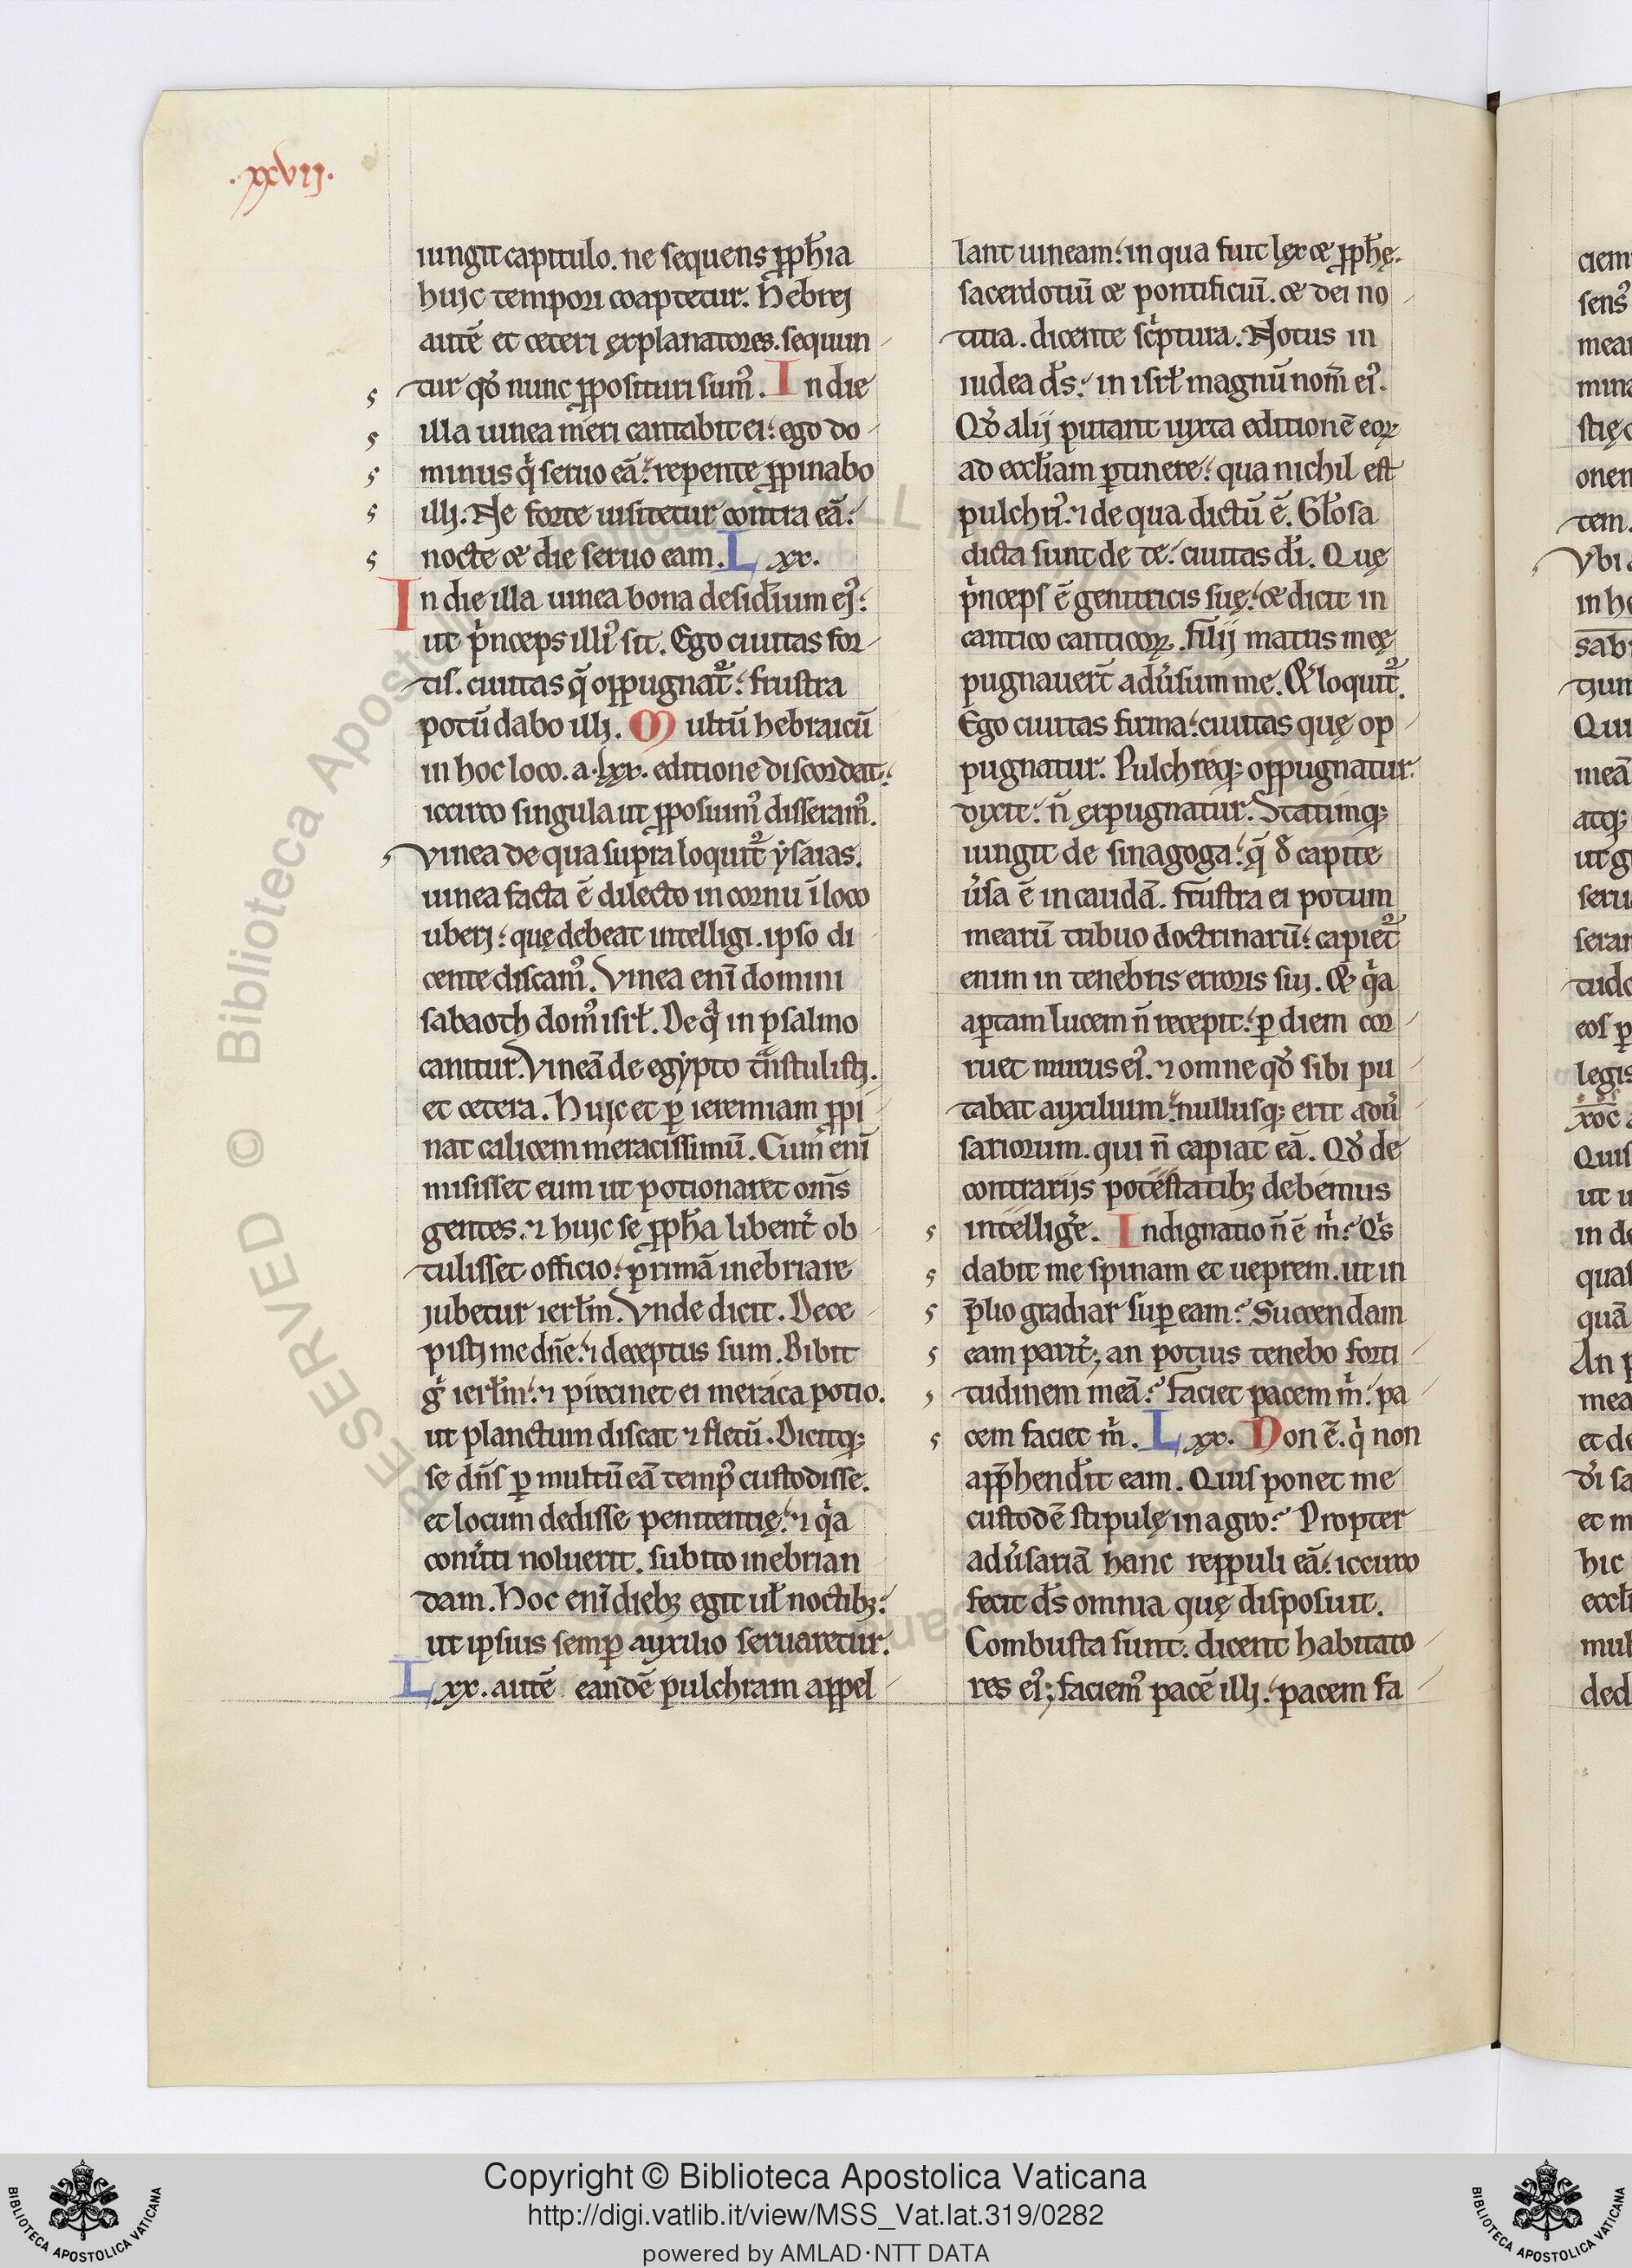 .xxvij.
iungit capitulo. ne sequens ꝓph̄ia
huic tempori coaptetur. Hebrej
autē et ceteri ęxplanatores. sequun
tur qđ nunc ꝓposituri sumꝰ. In die
illa uinea meri cantabit ei: ego do
minus q̇ seruo eā: repente ꝓpinabo
illj: Ne forte uisitetur contra eā:
nocte & die seruo eam. Lxx.
In die illa uinea bona desid̄ium ejꝰ:
ut pⁱnceps illiꝰ sit. Ego ciuitas for
tis. ciuitas q̄ oppugnat᷑: frustra
potū dabo illj. Multū hebraicū
in hoc loco. a .lxx. editione discordat:
iccirco singula ut ꝓposuimꝰ disseramꝰ.
Vinea de qua supra loquit᷑ ysaias.
uinea facta ē dilecto in cornu ī loco
uberj: quę debeat intelligi. ipso di
cente discamꝰ. Vinea enī domini
sabaoth domꝰ isrł. De qᵃ in psalmo
canitur. Vineā de egypto t̄nstulistj.
et cetera. Huic et ꝑ ieremiam ꝓpi
nat calicem meracissimū. Cum enī
misisset eum ut potionaret om̄s
gentes. ⁊ huic se ꝓph̄a libent̓ ob
tulisset officio: primā inebriare
jubetur ierłm. Vnde dicit. Dece
pistj me dn̄e: ⁊ deceptus sum. Bibit
gͥ ierłm: ⁊ piecinet ei meraca potio.
ut planctum discat ⁊ fletū. Dicitq;
se dn̄s ꝑ multū eā tempꝰ custodisse.
et locum dedisse penitentię: ⁊ qⁱa
conu̓ti noluerit. subito inebrian
dam. Hoc enī dieb; egit uł noctib;:
ut ipsius semꝑ auxilio seruaretur.
Lxx. autē eandē pulchram appel
lant uineam: in qua fuit lęx & ꝓph̄ę.
sacerdotiū & pontificiū. & dei no
titia. dicente sc̓ptura. Notus in
iudea d̄s: in isrł magnū nom̄ eiꝰ.
Qđ alij putant iuxta editionē eoꝝ
ad eccłiam ꝑtinere: qua nichil est
pulchriꝰ. ⁊ de qua dictū ē. Głosa
dicta sunt de te: ciuitas d̄i. Quę
pⁱnceps ē genitricis suę: & dicit in
cantico canticoꝝ. Filij matris meę
pugnauer̄t adu̓sum me. Et loquit᷑.
Ego ciuitas firma: ciuitas quę op
pugnatur. Pulchreq; oppugnatur
dixit: n̄ ęxpugnatur. Statimq;
iungit de sinagoga: q̄ đ capite
u̓sa ē in caudā. Frustra ei potum
mearū tribuo doctrinarū: capiet᷑
enim in tenebris erroris sui. Et qⁱa
aptam lucem n̄ recepit: ꝑ diem cor
ruet murus eiꝰ. ⁊ omne qđ sibi pu
tabat auxilium: nullusq; erit adu̓
sariorum. qui n̄ capiat eā. Qđ de
contrarijs potestatib; debemus
intellig̓e. Indignatio n̄ ē m̓: Qⁱs
dabit me spinam et ueprem. ut in
p̄lio gradiar suꝑ eam: Succendam
eam parit̓; an potius tenebo forti
tudinem meā: Faciet pacem m̓: pa
cem faciet m̓. Lxx. Non ē. q̓ non
app̄hendit eam. Quis ponet me
custodē stipulę in agro: Propter
adu̓sariā hanc reppuli eā: iccirco
fecit d̄s omnia quę disposuit.
Combusta sunt. dicent habitato
res eiꝰ; faciemꝰ pacē illj: pacem fa
Copyright © Biblioteca Apostolica Vaticana
http://digi.vatlib.it/view/MSS_Vat.lat.319/0282
powered by AMLAD·NTT DATA